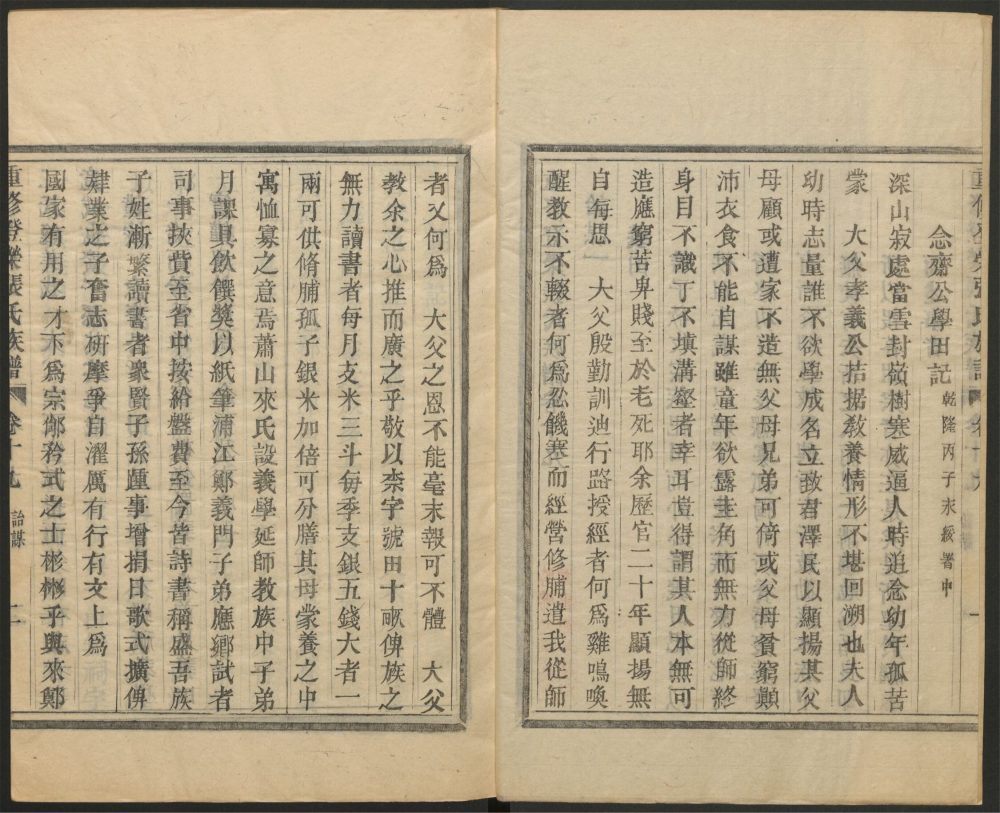 念齋公學田記乾隆丙子永綏署中
深山寂處當雲封嶺樹寒威逼人時追念幼年孤苦
蒙　大父孝義公拮据教養情形不堪回溯也夫人
幼時志量誰不欲學成名立致君澤民以顯揚其父
母顧或遭家不造無父母兄弟可倚或父母貧窮顛
沛衣食不能自謀雖童年欲露圭角而無力從師終
身目不識丁不填溝壑者幸耳豈得謂其人本無可
造應窮苦卑賤至於老死耶余歷官二十年顯揚無
自每思　大父殷勤訓迪行路授經者何為雞鳴喚
醒教示不輟者何為忍饑寒而經營修脯遣我從師
者又何為　大父之恩不能毫末報可不體　大父
教余之心推而廣之乎敬以柰字號田十畝俾族之
無力讀書者每月支米三斗每季支銀五錢大者一
兩可供脩脯孤子銀米加倍可分膳其母蒙養之中
寓恤寡之意焉蕭山來氏設義學延師教族中子弟
月課具飲饌獎以紙筆浦江鄭義門子弟應鄉試者
司事挾貲至省中按給盤費至今皆詩書稱盛吾族
子姓漸繁讀書者衆賢子孫踵事增捐日歌式擴俾
肄業之子奮志研摩爭自濯厲有行有文上為
國家有用之才不為宗鄉矜式之士彬彬乎與來鄭
重修登榮張氏族譜　卷十九　詒謀　二